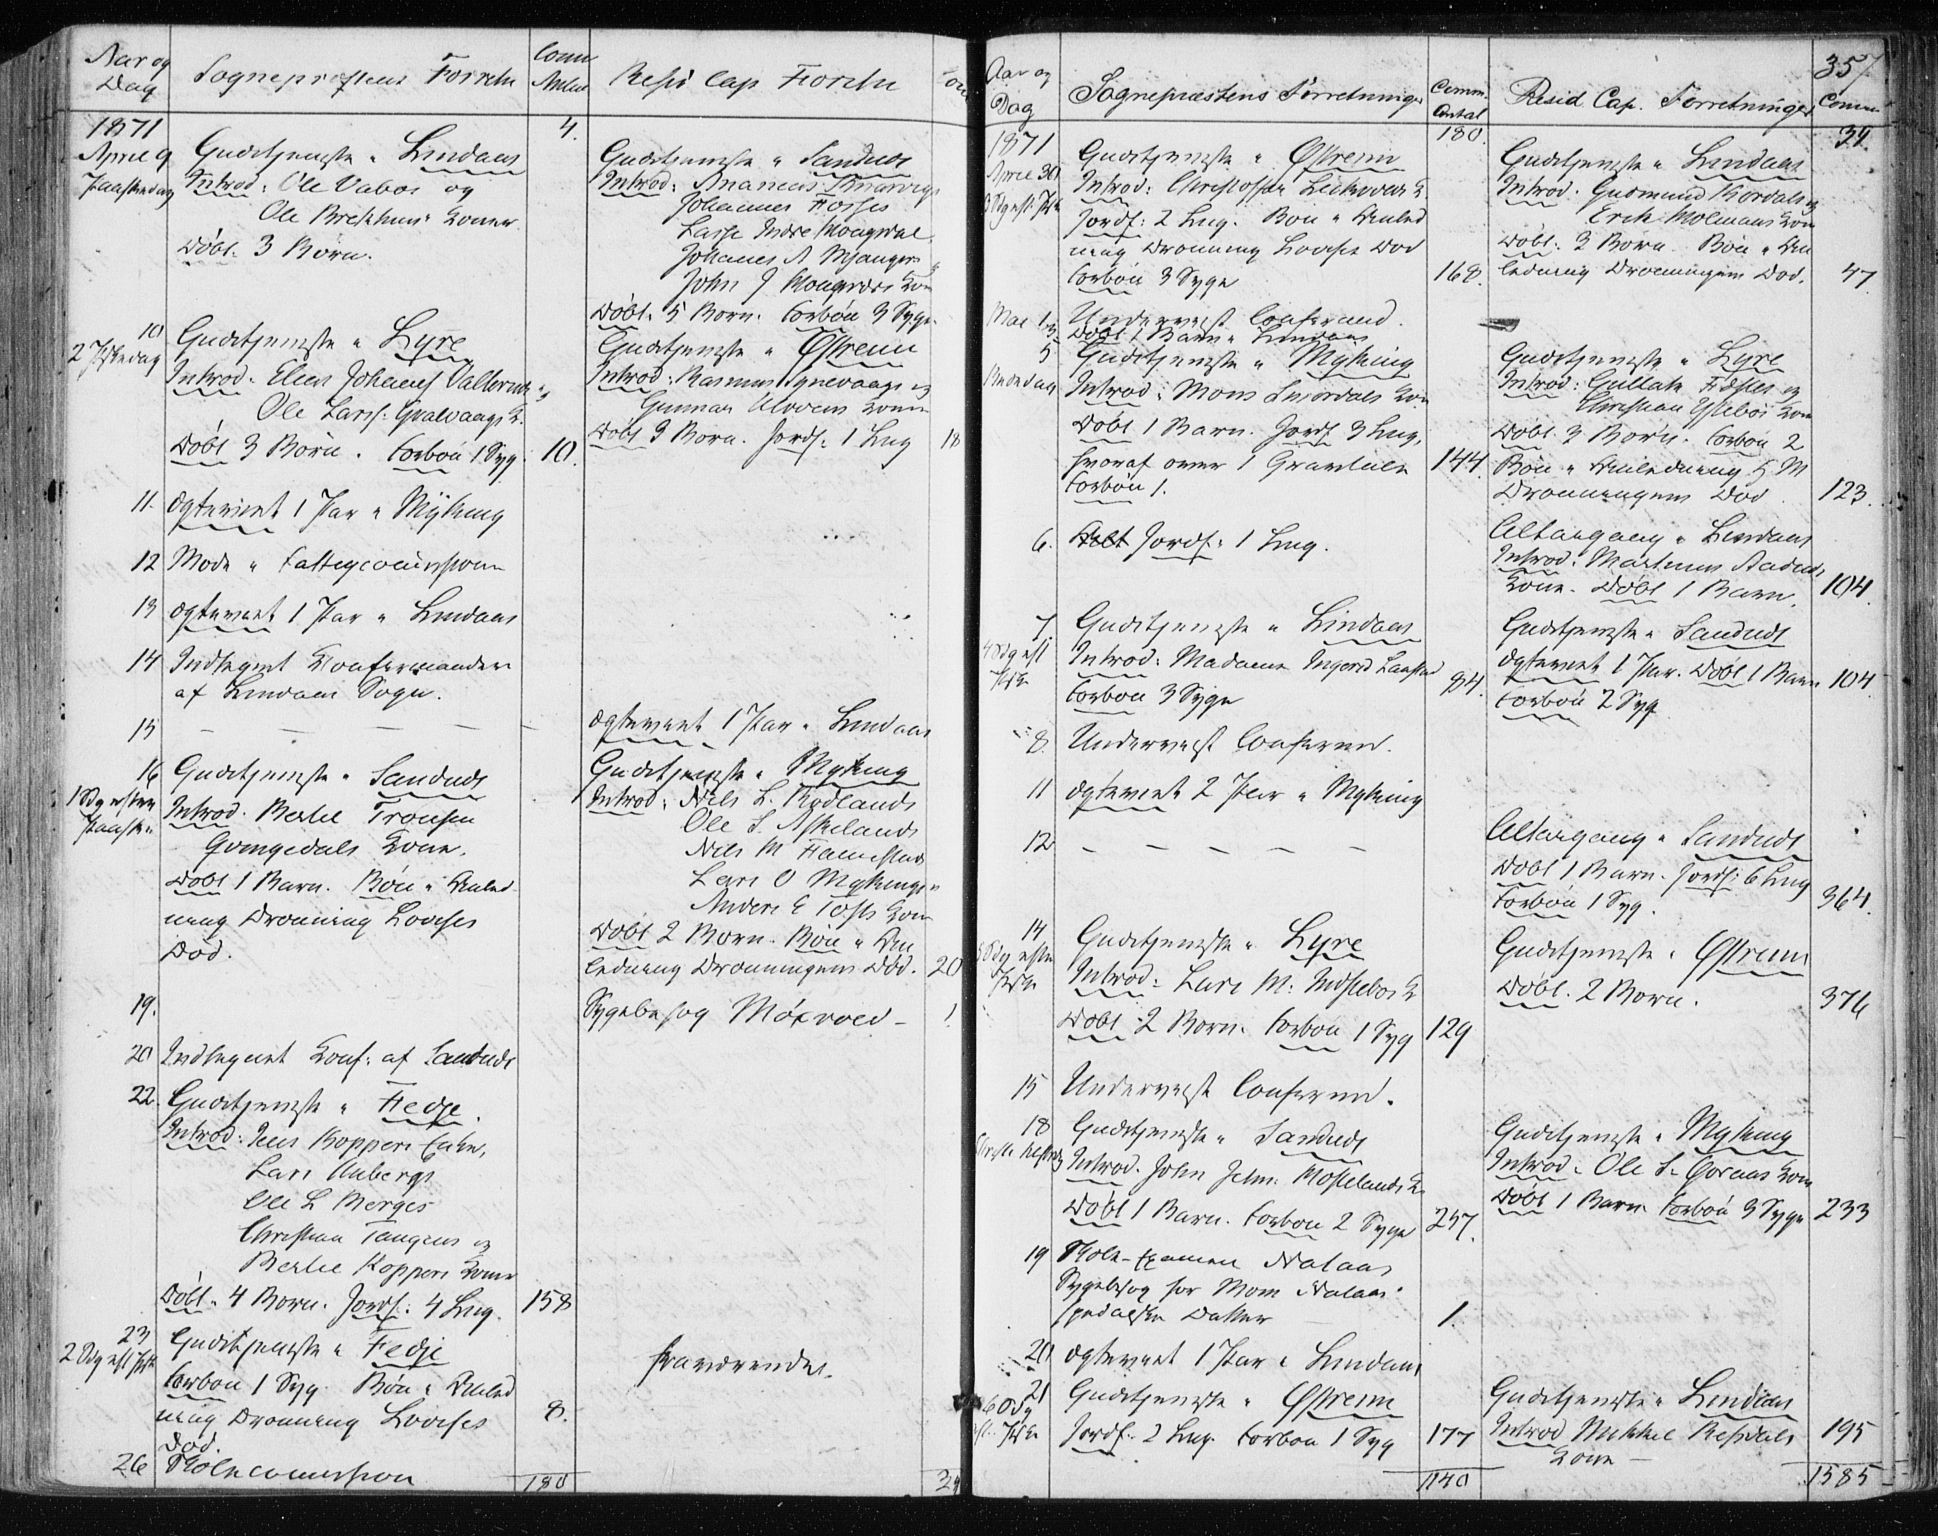 Aar og
Dag
Sognepræstens Forretn
Comm
Antal
Resid Cap Forretn
1871
4.
April 9
Paaskedag
Gudstjeneste i Lindaas
Introd: Ole Vabøs og
Ole Brekhus's Koner
Døbt. 3 Børn.
Gudstjeneste i Sandnes
Johannes Fosses
Johannes A Mjanger og
Døbt. 5 Børn. Forbøn 3 Syge.
10
2 Paaskedag
Gudstjeneste i Lyre
Ole Lars: Hvalvaags K.
Døbt 3 Børn. Forbøn 1 Syg.
10.
Gudstjeneste i Østrem
Introd: Rasmus Synevaags og
Døbt 3 Børn. Jordf: 1 Lig
18
11.
Ægteviet 1 Par i Myking
12
Møde i Fattigcommission
13
Ægteviet 1 Par i Lindaas
14
Indtegnet Konfirmander
af Lindaas Sogn.
15
— — — — —
Ægteviet 1 Par i Lindaas
16
1 Sdg efter
Paaske
Gudstjeneste i Sandnes
Introd. Bertel
Kone.
Døbt 1 Barn. Bøn i Anled
ning Dronning Lovises
Død.
Gudstjeneste i Myking
Introd: Nils L. Rydlands
Ole S. Askelands
Nils M
Lars O Mykings og
Anders E Tofts Kon
Døbt 2 Børn. Bøn i An
ledning Dronningens Død.
20
19.
Sygebesøg
1.
20
Indtegnet Konf: af Sandnes
22.
Gudstjeneste i Fedje.
Introd: Jens Koppers Enke,
Lars
Ole L
Christian Tangens og
Bertel Koppers Koner
Døbt. 4 Børn. Jordf: 4 Lig.
158
23
2 Sdg eft Pske
Gudstjeneste i Fedje
Forbøn 1 Syg. Bøn i Anled
ning Dronning Lovises
Død.
8.
Fraværende.
26
Skolecommission
180
Aar og
Dag
Sognepræstens Forretninger
Comm.
Antal
Resid Cap. Forretninger
357
Comm
1871
180.
39.
April 30
3 Sdg eft: Pske
Gudstjeneste i Østrem
Introd: Christoffer K
Jordf: 2 Lig. Bøn i Anled
ning Dronning Lovises Død
Forbøn 3 Syge
168.
Gudstjeneste i Lindaas
Introd. Gudmund Kordals og
Erik Molmans Kon
Døbt. 3 Børn. Bøn i An
ledning Dronningens Død.
47
Mai 1
Undervist Confirmand.
3
Døbt 1 Barn i Lindaas
5
Bededag
Gudstjeneste i Myking
Introd: Mons Kon
Døbt 1 Barn. Jordf 3 Lig,
hvoraf over 1 Gravtale
Forbøn 1.
144.
Gudstjeneste i Lyre
Introd: Gullak og
Christian Kon
Døbt. 3 Børn. Forbøn 2
Bøn i Anledning H M
Dronningens Død.
123.
6.
Jordf: 1 Lig.
Altargang i Lindaas
Introd: Martinus
Kone. Døbt 1 Barn.
104.
7
4 Sdg eft
Pske
Gudstjeneste i Lindaas
Introd: Madame Ingerid
Forbøn 3 Syge
84.
Gudstjeneste i Sandnes
Ægteviet 1 Par. Døbt 1 Barn
Forbøn 2 Syg
104
8.
Undervist Confirmd.
11
Ægteviet 2 Par i Myking
12
— — — — —
Altargang i Sandnes
Døbt 1 Barn. Jordf: 6 Lig
Forbøn 1 Syg.
364.
14
5 Sdg efter
Pske
Gudstjeneste i Lyre
Introd: Lars M: Indstebøs K
Døbt 2 Børn. Forbøn 1 Syg
129
Gudstjeneste i Østrem
Døbt. 2 Børn.
376
15
Undervist Confirmd.
18
Gudstjeneste i Sandnes
Introd. John
Døbt 1 Barn. Forbøn 2 Syge
257.
Gudstjeneste i Myking
Introd. Ole S. Kone
Døbt 1 Barn. Forbøn 3 Syge
233
19
Skole-Examen Nataas
Sygebesøg hos Mons Nataas'
spedalske Datter
1.
20
Ægteviet 1 Par i Lindaas
21
6 Sdg
eft. Pske
Gudstjeneste i Østrem
Jordf: 2 Lig. Forbøn 1 Syg
177
Gudstjeneste i Lindaas
Introd Mikkel
Kone —
195
1140
1585